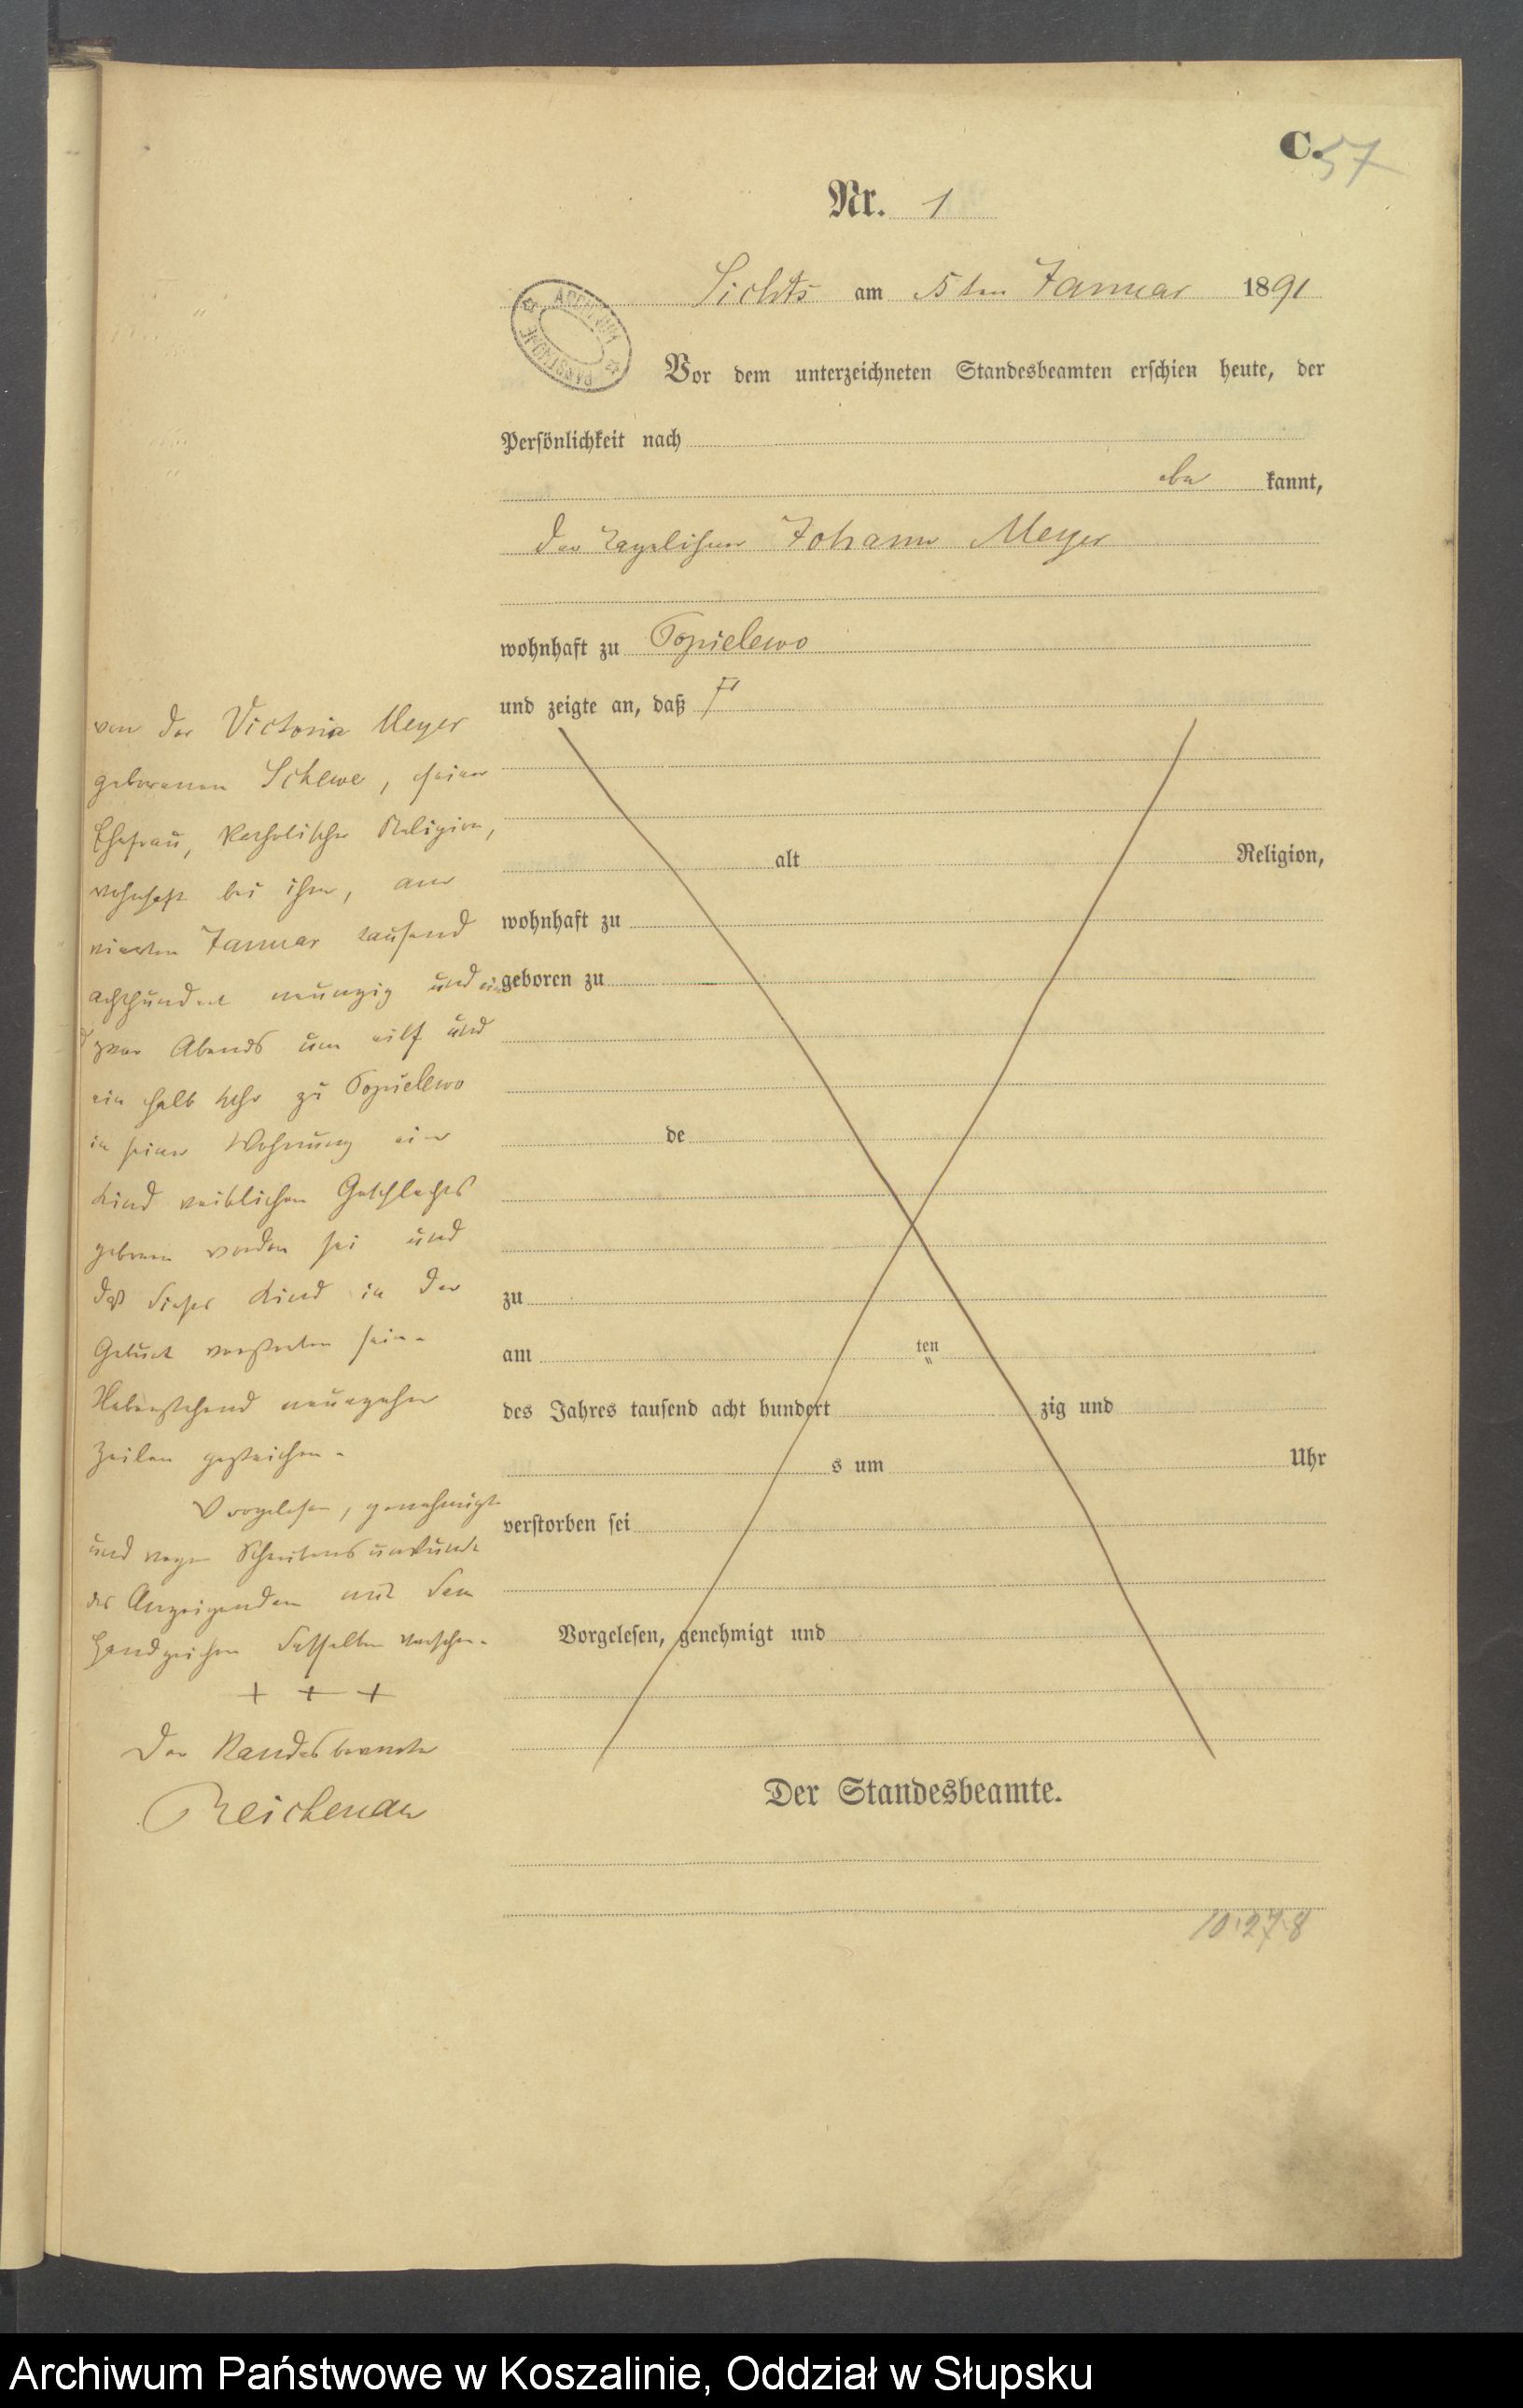 C. 57
Nr. 1
Lichts am 5ten Januar 1891
ARCHIWUM PAŃSTWOWE
Vor dem unterzeichneten Standesbeamten erschien heute, der
Persönlichkeit nach
be kannt,
der Johann Meyer
wohnhaft zu Topielewo
und zeigte an, daß
alt Religion,
wohnhaft zu
geboren zu
de
zu
am ten
des Jahres tausend acht hundert zig und
s um Uhr
verstorben sei
Vorgelesen, genehmigt und
Der Standesbeamte.
10.278
von der Victoria Meyer
geborenen Schewe, seiner
Ehefrau, katholischer Religion,
wohnhaft bei ihm, am
vierten Januar tausend
achthundert neunzig und ein
zwar Abends um eilf und
ein halb Uhr zu Topielewo
in seiner Wohnung ein
Kind weiblichen Geschlechts
geboren worden sei und
daß dieses Kind in der
Geburt verstorben sei.
Nebenstehend neunzehn
Zeilen gestrichen.
Vorgelesen, genehmigt
und wegen Schreibensunkunde
des Anzeigenden mit dem
Handzeichen desselben versehen.
+ + +
Der Standesbeamte
Reichenau
Archiwum Państwowe w Koszalinie, Oddział w Słupsku